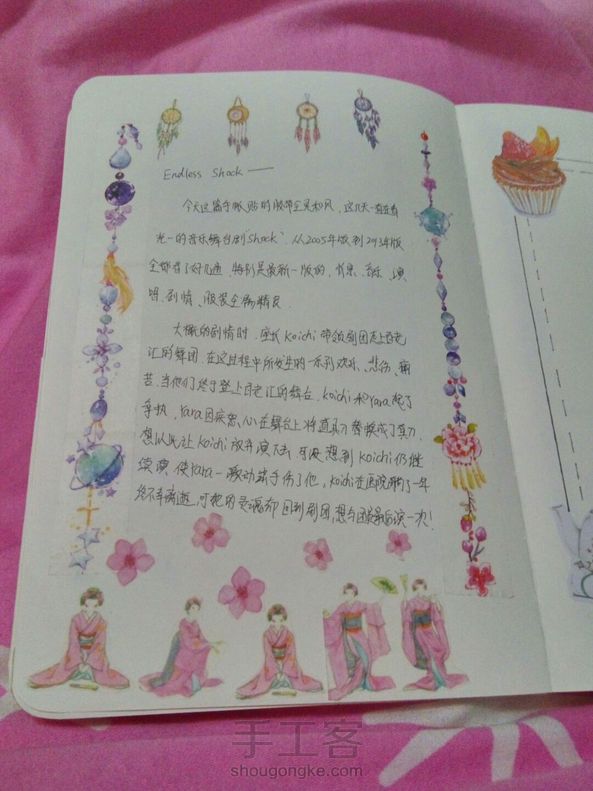 Endless Shock ——
今天这篇手帐贴的胶带全是和风，这几天一直在看
光一的音乐舞台剧"Shock"，从2005年版到2013年版
全都看了好几遍，特别是最新一版的，背景、音乐、演
唱、剧情、服装全属精良。
大概的剧情时，座长Koichi带领剧团走上百老
汇的舞团，在这过程中所发生的一系列欢乐、悲伤、痛
苦。当他们终于登上百老汇的舞台，Koichi和Yara起了
争执，Yara因疾妒心在舞台上将道具刀替换成了真刀，
想以此让Koichi放弃演下去，可没想到Koichi仍继
续演，使Yara一激动错手伤了他，Koichi在医院躺了一年
终不幸离逝，可他的灵魂却回到剧团，想与团员最后演一次！
手工客
shougongke.com